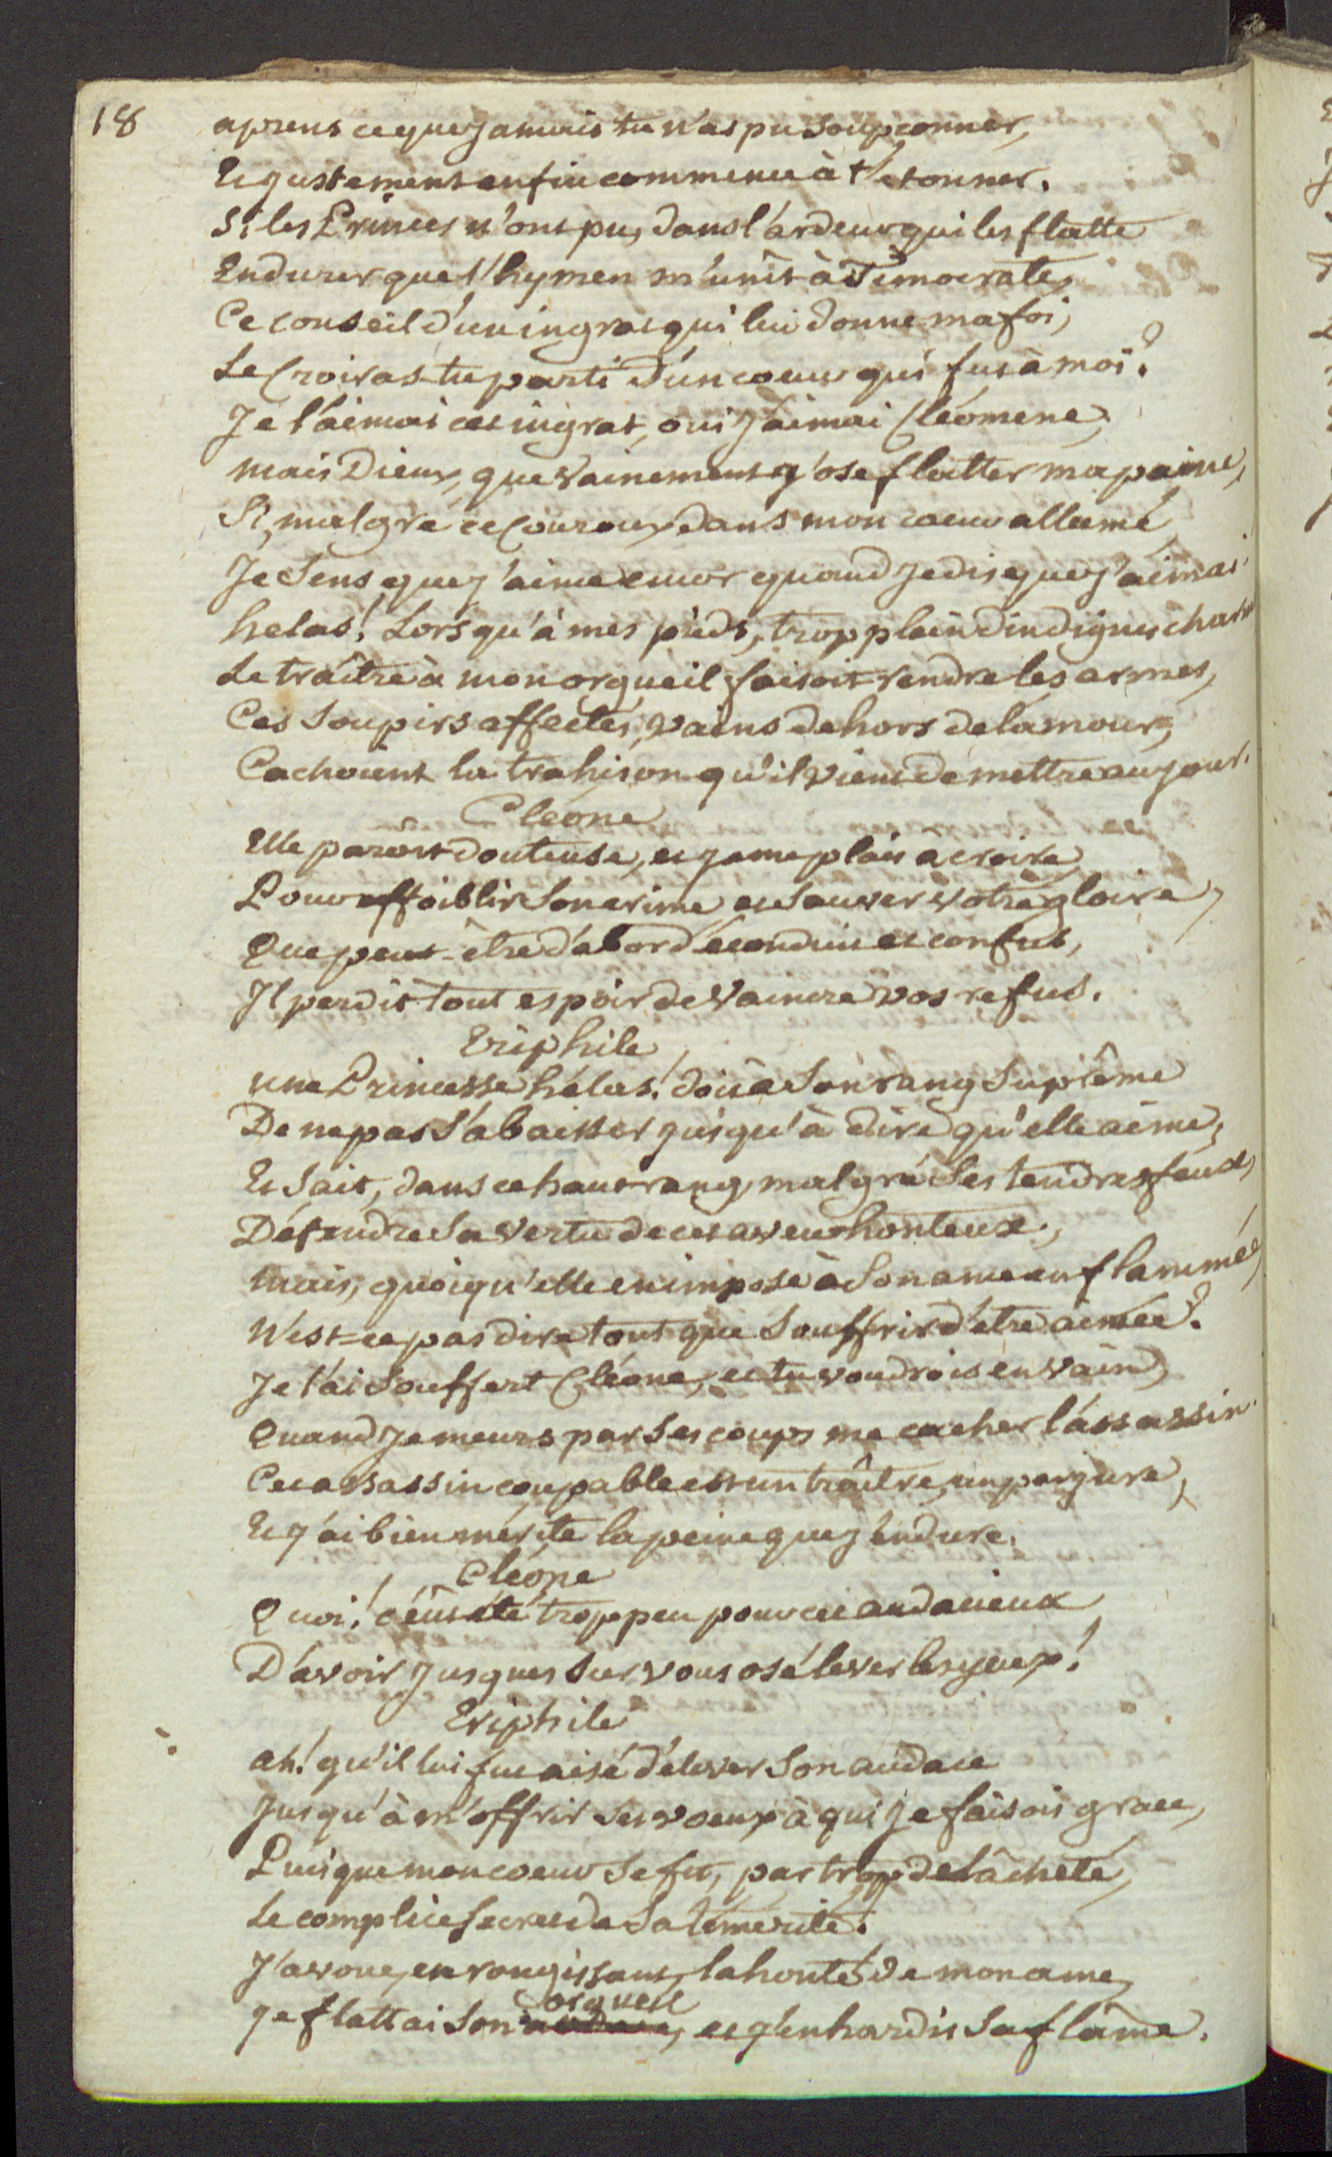 18
aprens ce que jamais tu n'as pu soupçonner,
Et justement enfin commence à t'étonner.
Si les Princes n'ont pu, dans l'ardeur qui les flatte
Endurer que l'hymen m'unît à Timocrate,
Ce conseil d'un ingrat qui lui donne ma foi,
Le Croiras-tu parti d'un coeur qui fut à moi?
Je l'aimai cet ingrat, oui j'aimai Cléomene,
mais Dieux, que vainement j'ose flatter ma paine,
Si, malgré ce Couroux dans mon coeur allumé
Je sens que j'aime encor quand je dis que j'aimai.
helas! Lorsqu'à mes pieds, trop plein d'indignes charm
Le traître à mon orgueil faisoit rendre les armes,
Ces soupirs affectés, vains dehors de l'amour,
Cachoient la trahison qu'il vient de mettre au jour.
Cléone
Elle paroît douteuse, et j'ame plais a croire,
Pour affoiblir son crime et sauver votre gloire,
Que peut-être d'abord éconduit et confus,
Il perdit tout espoir de vaincre vos refus.
Eriphile
une Princesse hélas! doit à son rang suprême
De ne pas s'abaisser jusqu'à dire qu'elle aime,
Et sait, dans ce haut rang, malgré ses tendres feux,
Défendre sa vertu de cet aveu honteux,
mais, quoiqu'elle en impose à son ame enflammée,
N'est-ce pas dire tout que souffrir d'être aimée?
Je l'ai souffert Cléone, et tu voudrois en vain,
Quand je meurs par ses coups me cacher l'assassin.
Cet assassin coupable est un traître, un parjure,
Et j'ai bien mérité la peine que j'endure.
Cléone
Quoi! c'eût été trop peu pour cet audacieux
D'avoir jusques sur vous osé lever les yeux!
Eriphile
ah! qu'il lui fut aisé d'élever son audace
Jusqu'à m'offrir ses voeux à qui je faisois grace,
Puisque mon coeur se fit, par trop de lâcheté,
Le complice secret de sa témérité.
J'avoue, en rougissant, la honte de mon ame,
orgueil
je flattai son audace, et j'enhardis sa flâme.